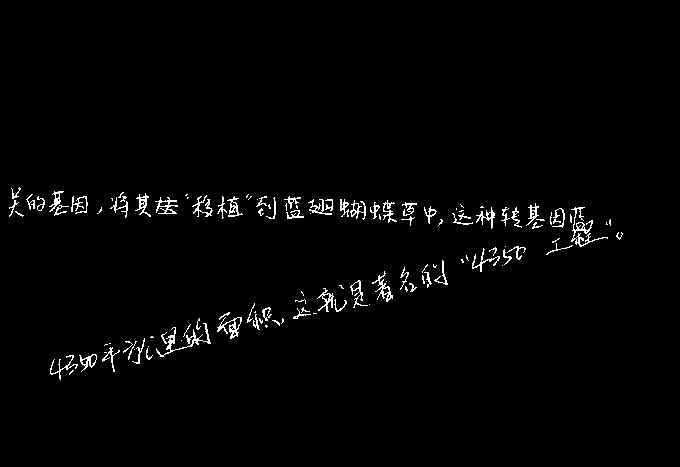 关的基因，将其法“移植”到蓝翅蝴蝶草中，这种转基因蓝
4350平方公里的面积，这就是著名的“4350 工程”。